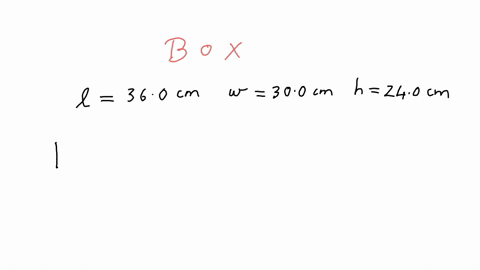 Box
l = 36.0 cm w = 30.0 cm h = 24.0 cm